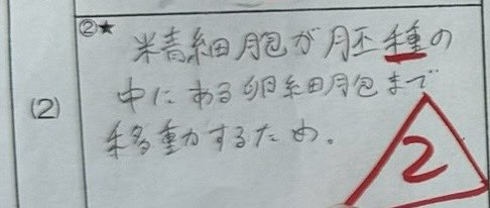 ②★
精細胞が胚種の
(2)
中にある卵細胞まで
移動するため。
2